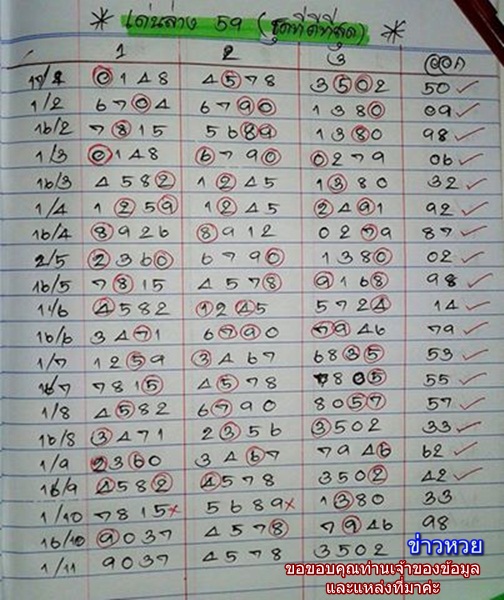 * เด่นล่าง 59 (ชุดที่ดีที่สุด) *
1 2 3 ออก
0148 4578 3502 50 ✓
1/2 6704 6790 1380 09 ✓
16/2 7815 5689 1380 98 ✓
1/3 0148 6790 0279 06 ✓
16/3 4582 1245 1380 32 ✓
1/4 1259 1245 2491 92 ✓
16/4 8926 8912 0279 87 ✓
2/5 2360 6790 1380 02 ✓
16/5 7815 4578 9168 98 ✓
1/6 4582 1245 5724 14 ✓
16/6 3471 6790 7946 79 ✓
1/7 1259 3467 6835 53 ✓
16/7 7815 4578 7805 55 ✓
1/8 4582 6790 8057 57 ✓
16/8 3471 2356 3502 33 ✓
1/9 2360 3467 7946 62 ✓
16/9 4582 4578 3502 42 ✓
1/10 7815× 5689× 1380 33
16/10 9037 4578 7946 98
1/11 9037 4578 3502
ข่าวหวย
ขอขอบคุณท่านเจ้าของข้อมูล
และแหล่งที่มาค่ะ